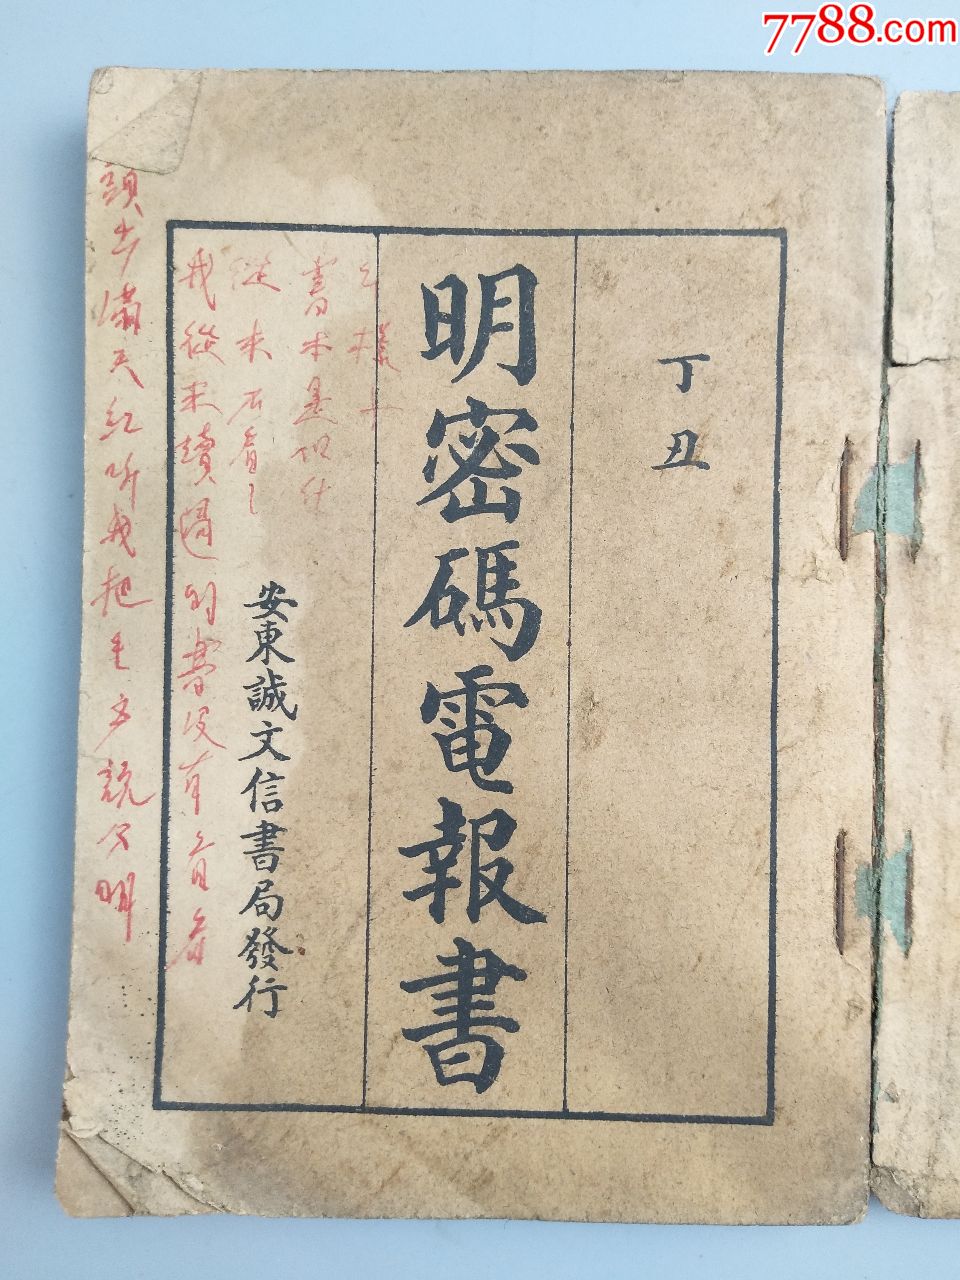 7788.com
丁丑
明密碼電報書
安東誠文信書局發行
書本是
從未看
我從未讀過的書沒有看看
滿天紅听我把主文說分明